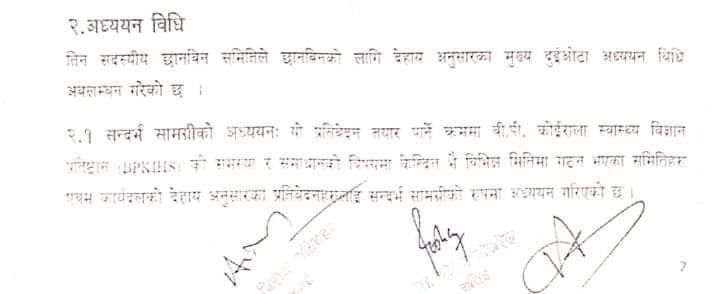 २.अध्ययन विधि
तिन सदस्यीय छानविन समितिले छानविनको लागि देहाय अनुसारका मुख्य दुईओटा अध्ययन विधि
अवलम्बन गरेको छ ।
२.१ सन्दर्भ सामग्रीको अध्ययनः यो प्रतिवेदन तयार पार्ने क्रममा बी.पी. कोईराला स्वास्थ्य विज्ञान
प्रतिष्ठान (BPKIHS) को समस्या र समाधानको विषयमा केन्द्रित भै विभिन्न मितिमा गठन भएका समितिहरु
एवम कार्यदलको देहाय अनुसारका प्रतिवेदनहरुलाई सन्दर्भ सामग्रीको रुपमा अध्ययन गरिएको छ ।
7